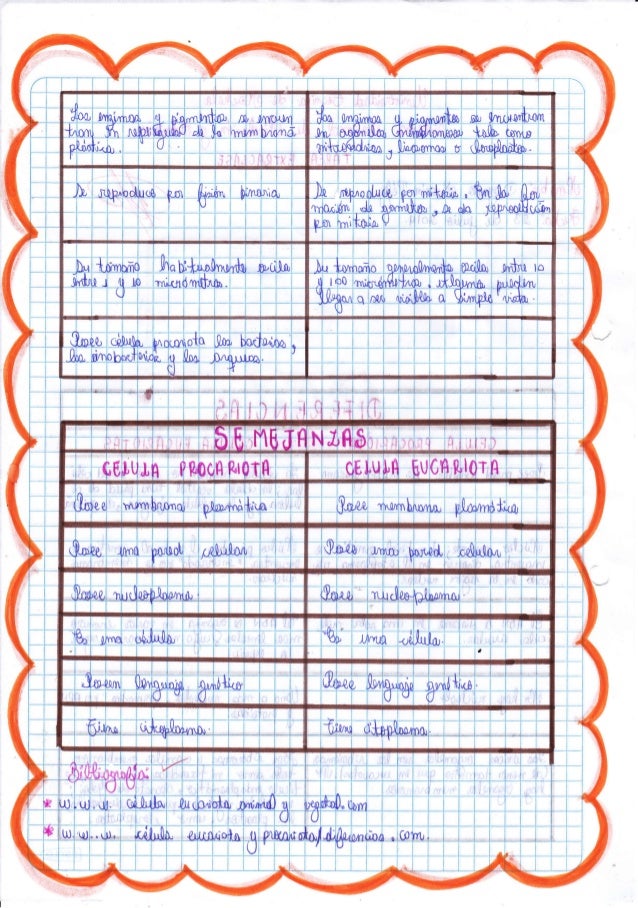 Las enzimas y pigmentos se encuen
tran en repliegues de la membrana
plástica.
Las enzimas y pigmentos se encuentran
en organelos membranosos tales como
mitocondrias, lisosomas o cloroplastos.
Se reproduce por fisión binaria
Se reproduce por mitosis. En la for
mación de gametos, se da reproducción
por mitosis
Su tamaño habitualmente oscila
entre 1 y 10 micrómetros.
Su tamaño generalmente oscila entre 10
y 100 micrómetros. Algunas pueden
llegar a ser visible a simple vista.
Posee célula procariota las bacterias,
las cinobacterias y las arqueas.
SEMEJANZAS
CELULA PROCARIOTA
CELULA EUCARIOTA
Posee membrana plasmática
Posee membrana plasmática
Posee una pared celular
Posee una pared celular
Posee nucleoplasma.
Posee nucleoplasma.
Es una célula
Es una célula.
Poseen lenguaje genético
Posee lenguaje genético.
Tiene citoplasma.
Tiene citoplasma.
Bibliografía:
* w.w.w. célula eucariota animal y vegetal.com
* w.w..w. célula eucariota y procariota/diferencias.com.